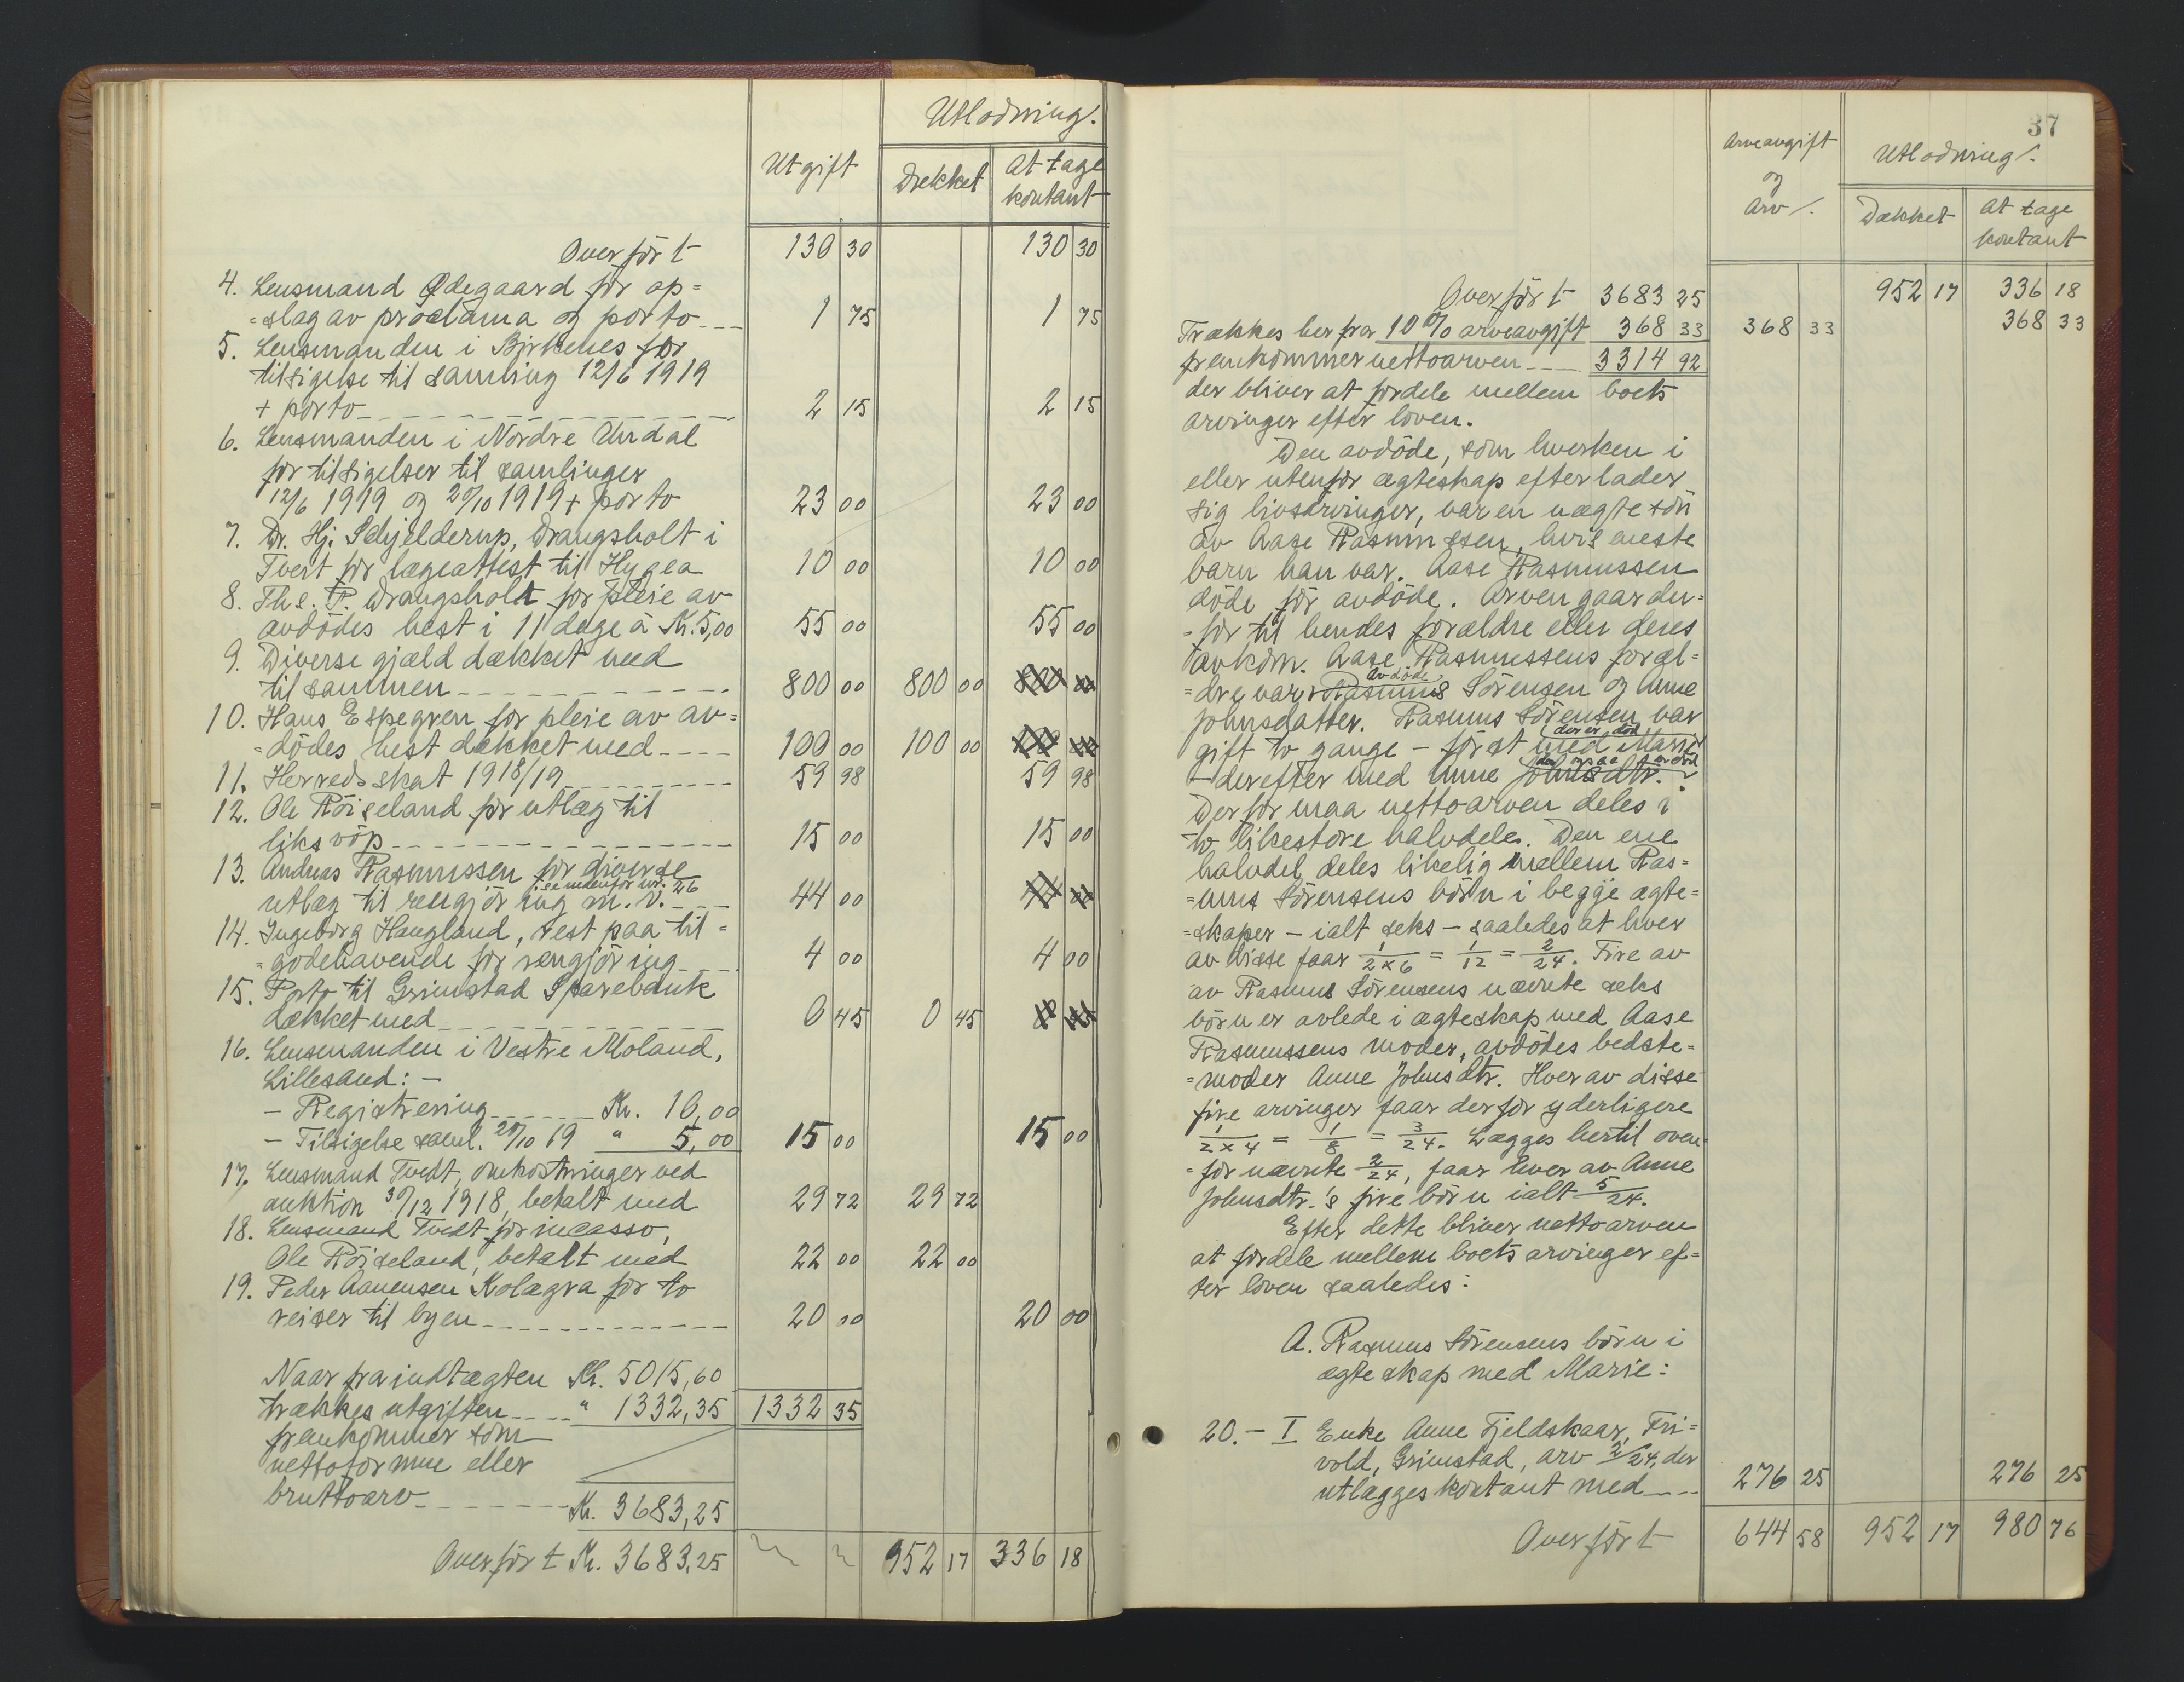 Utlodning.
Utgift
Dækket
At tage
kontant
Overfört 130 30 130 30
4. Lensmand Ødegaard for op=
=slag av proclama og porto 1 75 1 75
5. Lensmanden i Birkenes for
tilsigelse til samling 12/6 1919
+ porto 2 15 2 15
6. Lensmanden i Nordre Undal
for tilsigelser til samlinger
12/6 1919 og 20/10 1919 + porto 23 00 23 00
7. Dr. Hj. Schjelderup, Drangsholt i
Tveit for lægeattest til Hygea 10 00 10 00
8. Ths. P. Drangsholt for pleie av
avdödes hest i 11 dage à Kr. 5,00 55 00 55 00
9. Diverse gjæld dækket med
tilsammen 800 00 800 00
10. Hans Espegren for pleie av av=
=dödes hest dækket med 100 00 100 00
11. Herredsskat 1918/19 59 98 59 98
12. Ole Röiseland for utlæg til
liksvöp 15 00 15 00
13. Andreas Rasmussen for diverse
se nedenfor nr. 26
utlæg til rengjöring m. v. 44 00 44 00
14. Ingeborg Haugland, rest paa til=
=godehavende for rengjöring 4 00 4 00
15. Porto til Grimstad Sparebank
dækket med 0 45 0 45
16. Lensmanden i Vestre Moland,
Lillesand: –
– Registrering Kr. 10,00
– Tilsigelse saml. 20/10 19 " 5,00 15 00 15 00
17. Lensmand Tvedt, omkostninger ved
auktion 30/12 1918, betalt med 29 72 29 72
18. Lensmand Tvedt for incasso,
Ole Röiseland, betalt med 22 00 22 00
19. Peder Aanensen Kolagra for to
reiser til byen 20 00 20 00
Naar fra indtægten Kr. 5015,60
trækkes utgiften " 1332,35 1332 35
fremkommer som
nettoformue eller
bruttoarv Kr. 3683,25
Overfört Kr. 3683,25 952 17 336 18
37
Arveavgift
og
Arv /.
Utlodning /.
Dækket
At tage
kontant
Overfört 3683 25 952 17 336 18
Trækkes herfra 10% arveavgift 368 33 368 33 368 33
fremkommer nettoarven 3314 92
der bliver at fordele mellem boets
arvinger efter loven.
Den avdöde, som hverken i
eller utenfor ægteskap efterlader
sig livsarvinger, var en uægte sön
av Aase Rasmussen, hvis eneste
barn han var. Aase Rasmussen
döde för avdöde. Arven gaar der=
=for til hendes forældre eller deres
avkom. Aase Rasmussens foræl=
avdöde
=dre var Rasmus Sörensen og Anne
Johnsdatter. Rasmus Sörensen var
(der er död
gift to gange – först med Marie
der ogsaa er död
– derefter med Anne Johnsdtr.
Derfor maa nettoarven deles i
to likestore halvdele. Den ene
halvdel deles likelig mellem Ras=
=mus Sörensens börn i begge ægte=
=skaper – ialt seks – saaledes at hver
av disse faar 1/2×6 = 1/12 = 2/24. Fire av
av Rasmus Sörensens nævnte seks
börn er avlede i ægteskap med Aase
Rasmussens moder, avdödes bedste=
=moder Anne Johnsdtr. Hver av disse
fire arvinger faar derfor yderligere
1/2×4 = 1/8 = 3/24. Lægges hertil oven=
=for nævnte 2/24, faar hver av Anne
Johnsdtr.'s fire börn ialt 5/24.
Efter dette bliver nettoarven
at fordele mellem boets arvinger ef=
ter loven saaledes:
A. Rasmus Sörensens börn i
ægteskap med Marie:
20. – I Enke Anne Fjeldskaar, Fri=
vold, Grimstad, arv 2/24, der
utlægges kontant med 276 25 276 25
Overfört 644 58 952 17 980 76